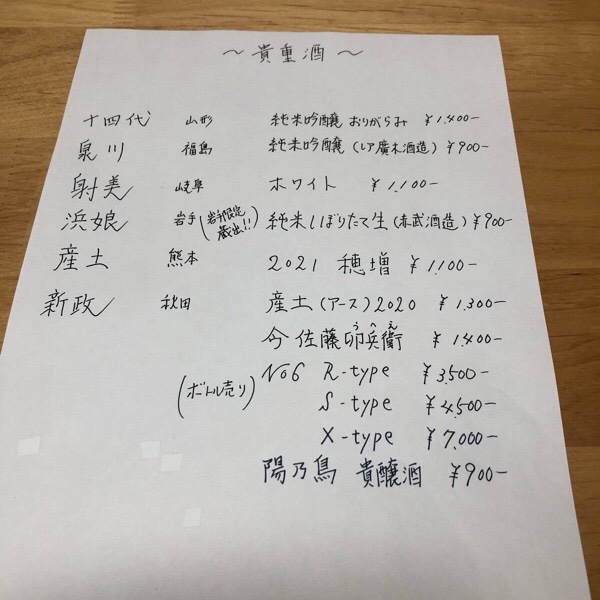 ～貴重酒～
十四代 山形 純米吟醸 おりがらみ ¥1.400-
泉川 福島 純米吟醸 (レア廣木酒造) ¥900-
射美 岐阜 ホワイト ¥1,100-
浜娘 岩手 (岩手限定蔵出!!) 純米しぼりたて生 (赤武酒造) ¥900-
産土 熊本 2021 穂増 ¥1,100-
新政 秋田 産土 (アース) 2020 ¥1,300-
今 佐藤卯兵衛 ¥1.400-
うへえ
(ボトル売り) No6 R-type ¥3,500-
S-type ¥4,500-
X-type ¥7,000-
陽乃鳥 貴醸酒 ¥900-